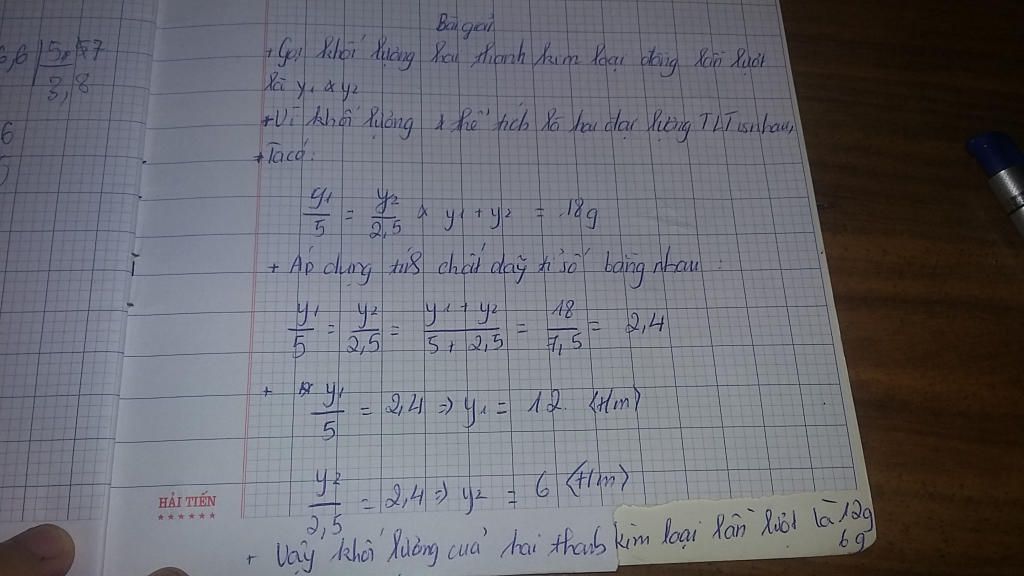 Bài giải
5,6 | 5,77
3,8
+ Gọi khối lượng hai thanh kim loại đồng lần lượt
là y1 & y2
+ Vì khối lượng & thể tích là hai đại lượng TLT với nhau,
+ Ta có:
y1/5 = y2/2,5 & y1 + y2 = 18g
+ Áp dụng t/c chất dãy tỉ số bằng nhau:
y1/5 = y2/2,5 = y1 + y2/5 + 2,5 = 18/7,5 = 2,4
+ y1/5 = 2,4 => y1 = 12 (t/m)
y2/2,5 = 2,4 => y2 = 6 (t/m)
+ Vậy khối lượng của hai thanh kim loại lần lượt là 12g
6g
6
HẢI TIẾN